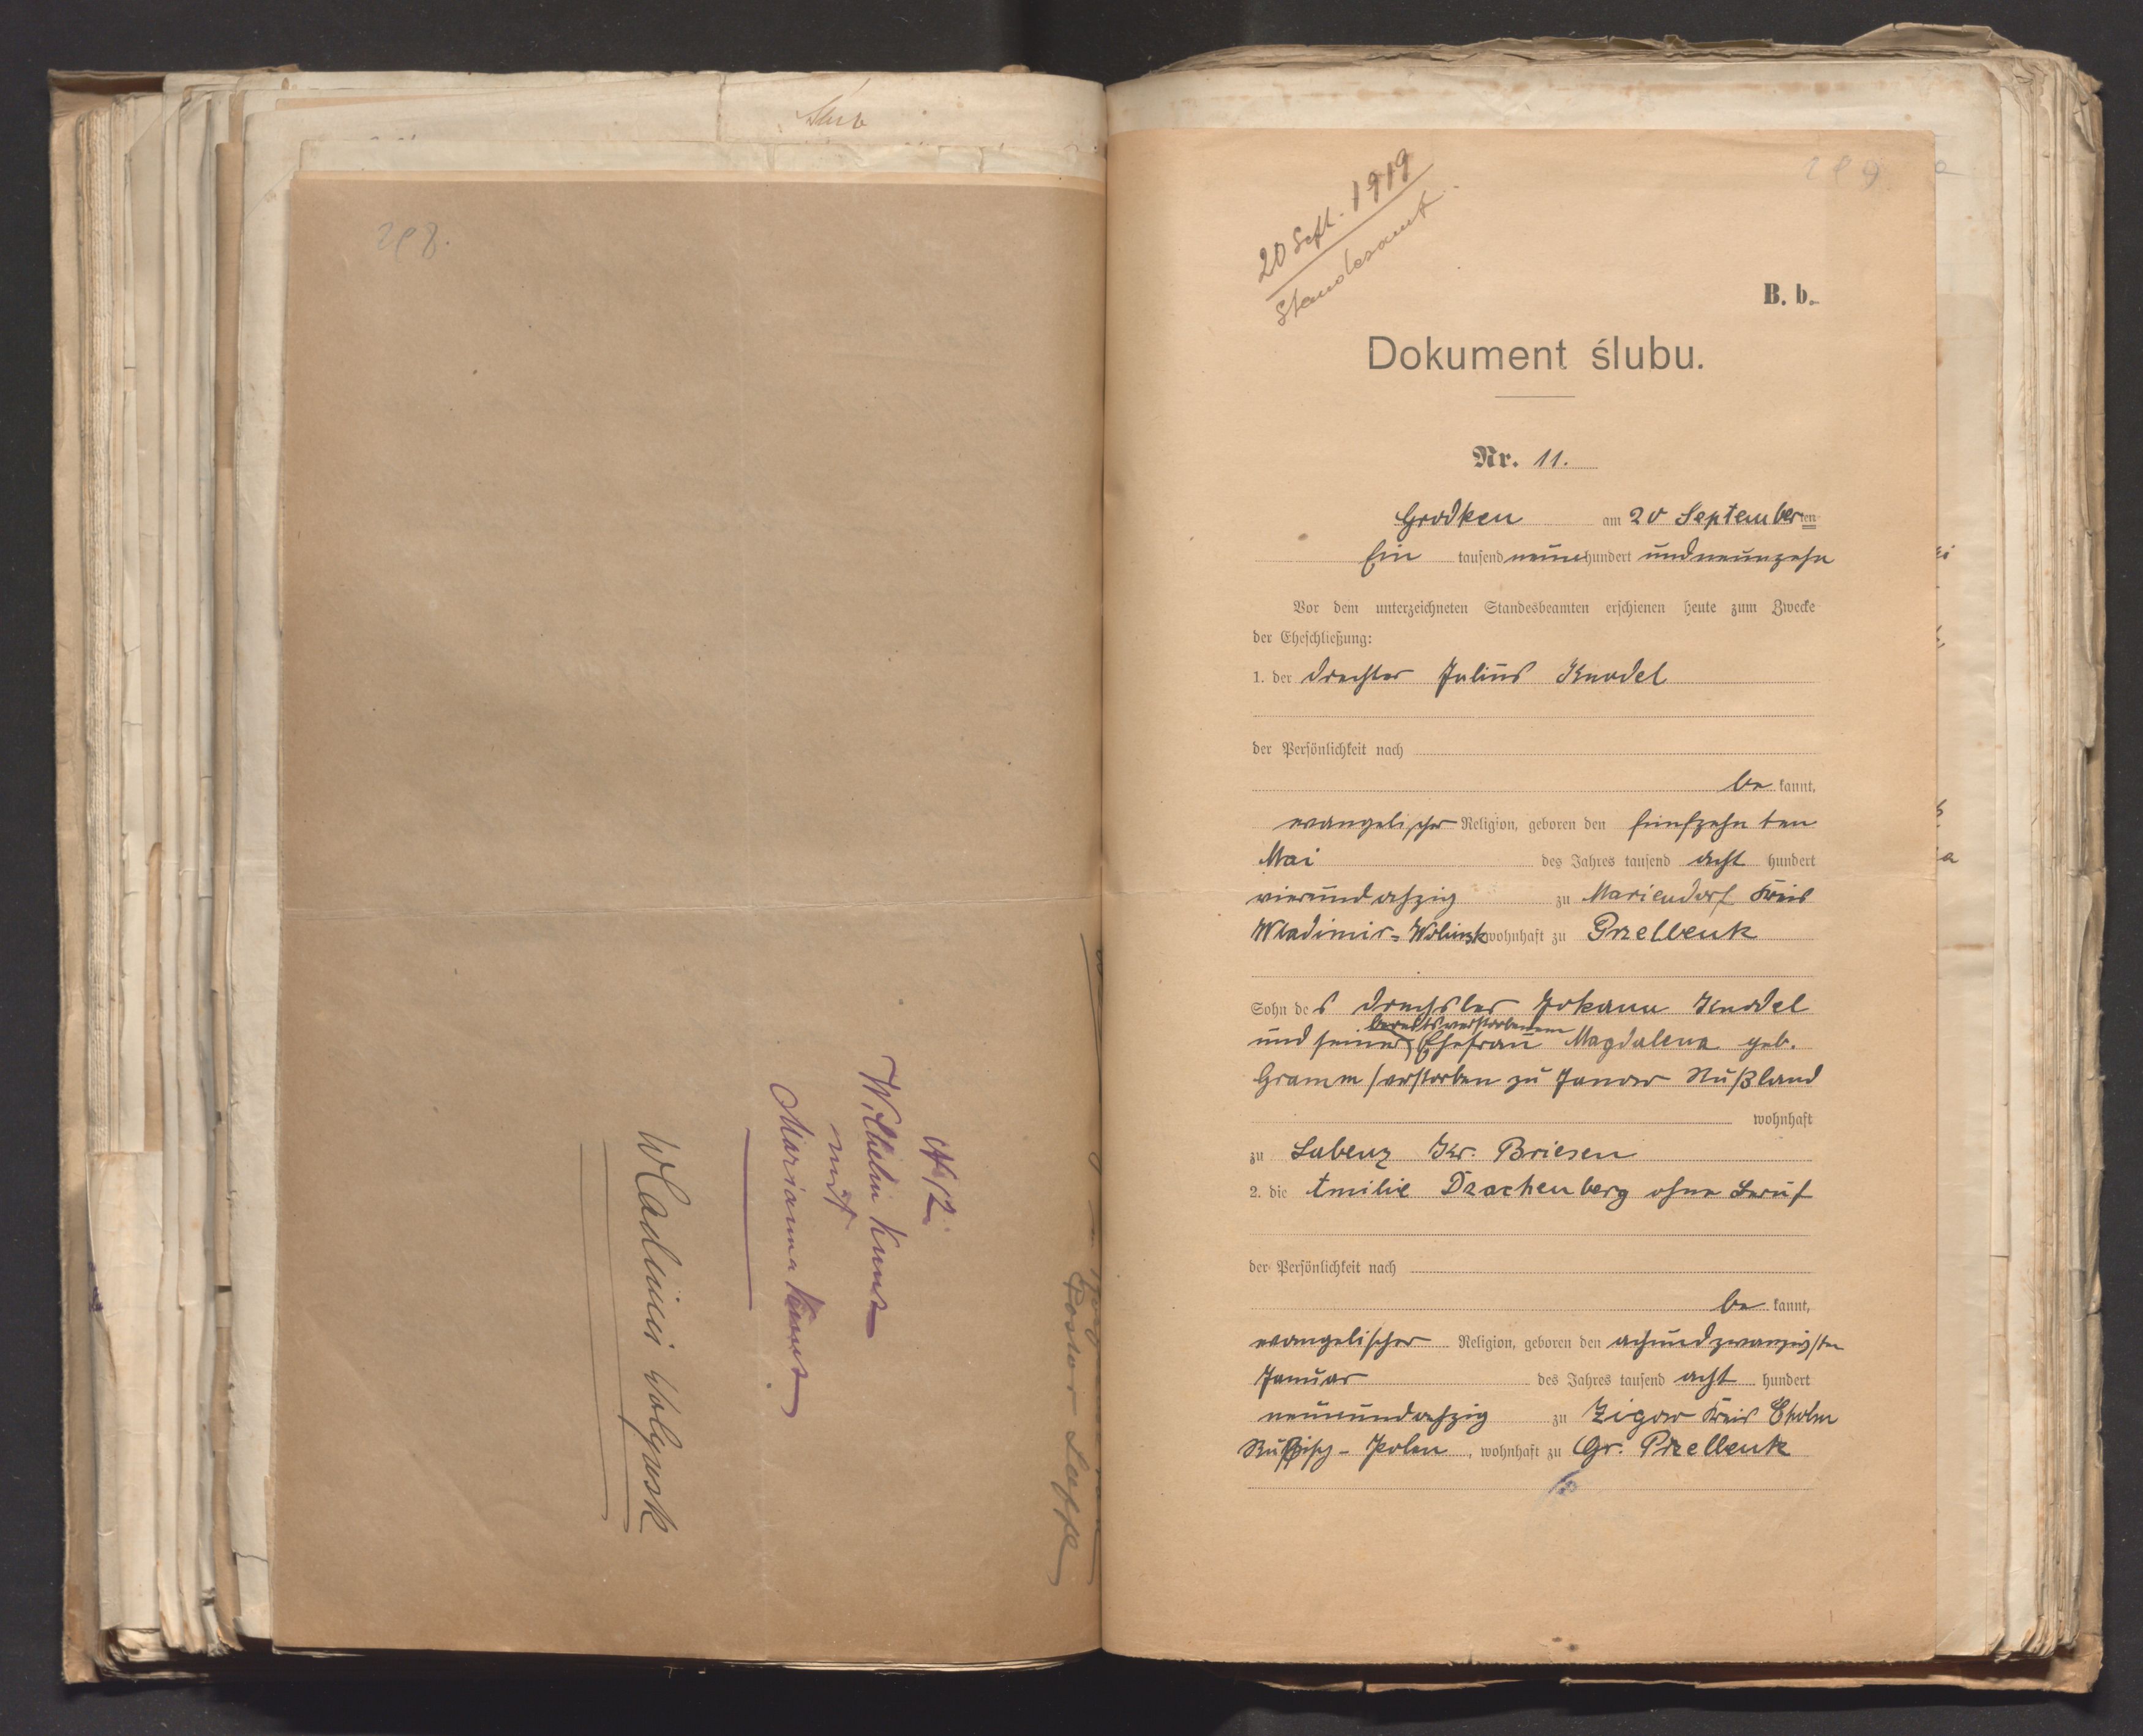 Ślub
298.
Nr 12.
Wilhelm Kunz
mit
Marianna Kunz
Wladimir Wolynsk
Pastor
289
20 Sept. 1919
Standesamt.
B. b.
Dokument ślubu.
Nr. 11.
Grodken am 20 September ten
Ein tausend neunhundert undneunzehn
Vor dem unterzeichneten Standesbeamten erschienen heute zum Zwecke
der Eheschließung:
1. der Drechsler Julius Knodel
der Persönlichkeit nach
be kannt,
evangelischer Religion, geboren den fünfzehn ten
Mai des Jahres tausend acht hundert
vierundachzig zu Mariendorf Kreis
Wladimir-Wolinsk wohnhaft zu Przellenk
Sohn des Drechsler Johann Knodel
bereits verstorbenen
und seiner Ehefrau Magdalena geb.
Gramm verstorben zu Janow Rußland
wohnhaft
zu Labenz Kr. Briesen
2. die Emilie Drachenberg ohne Beruf
der Persönlichkeit nach
be kannt,
evangelischer Religion, geboren den achundzwanzigsten
Januar des Jahres tausend acht hundert
neunundachzig zu Zigow Kreis Cholm
Russisch-Polen, wohnhaft zu Gr. Przellenk